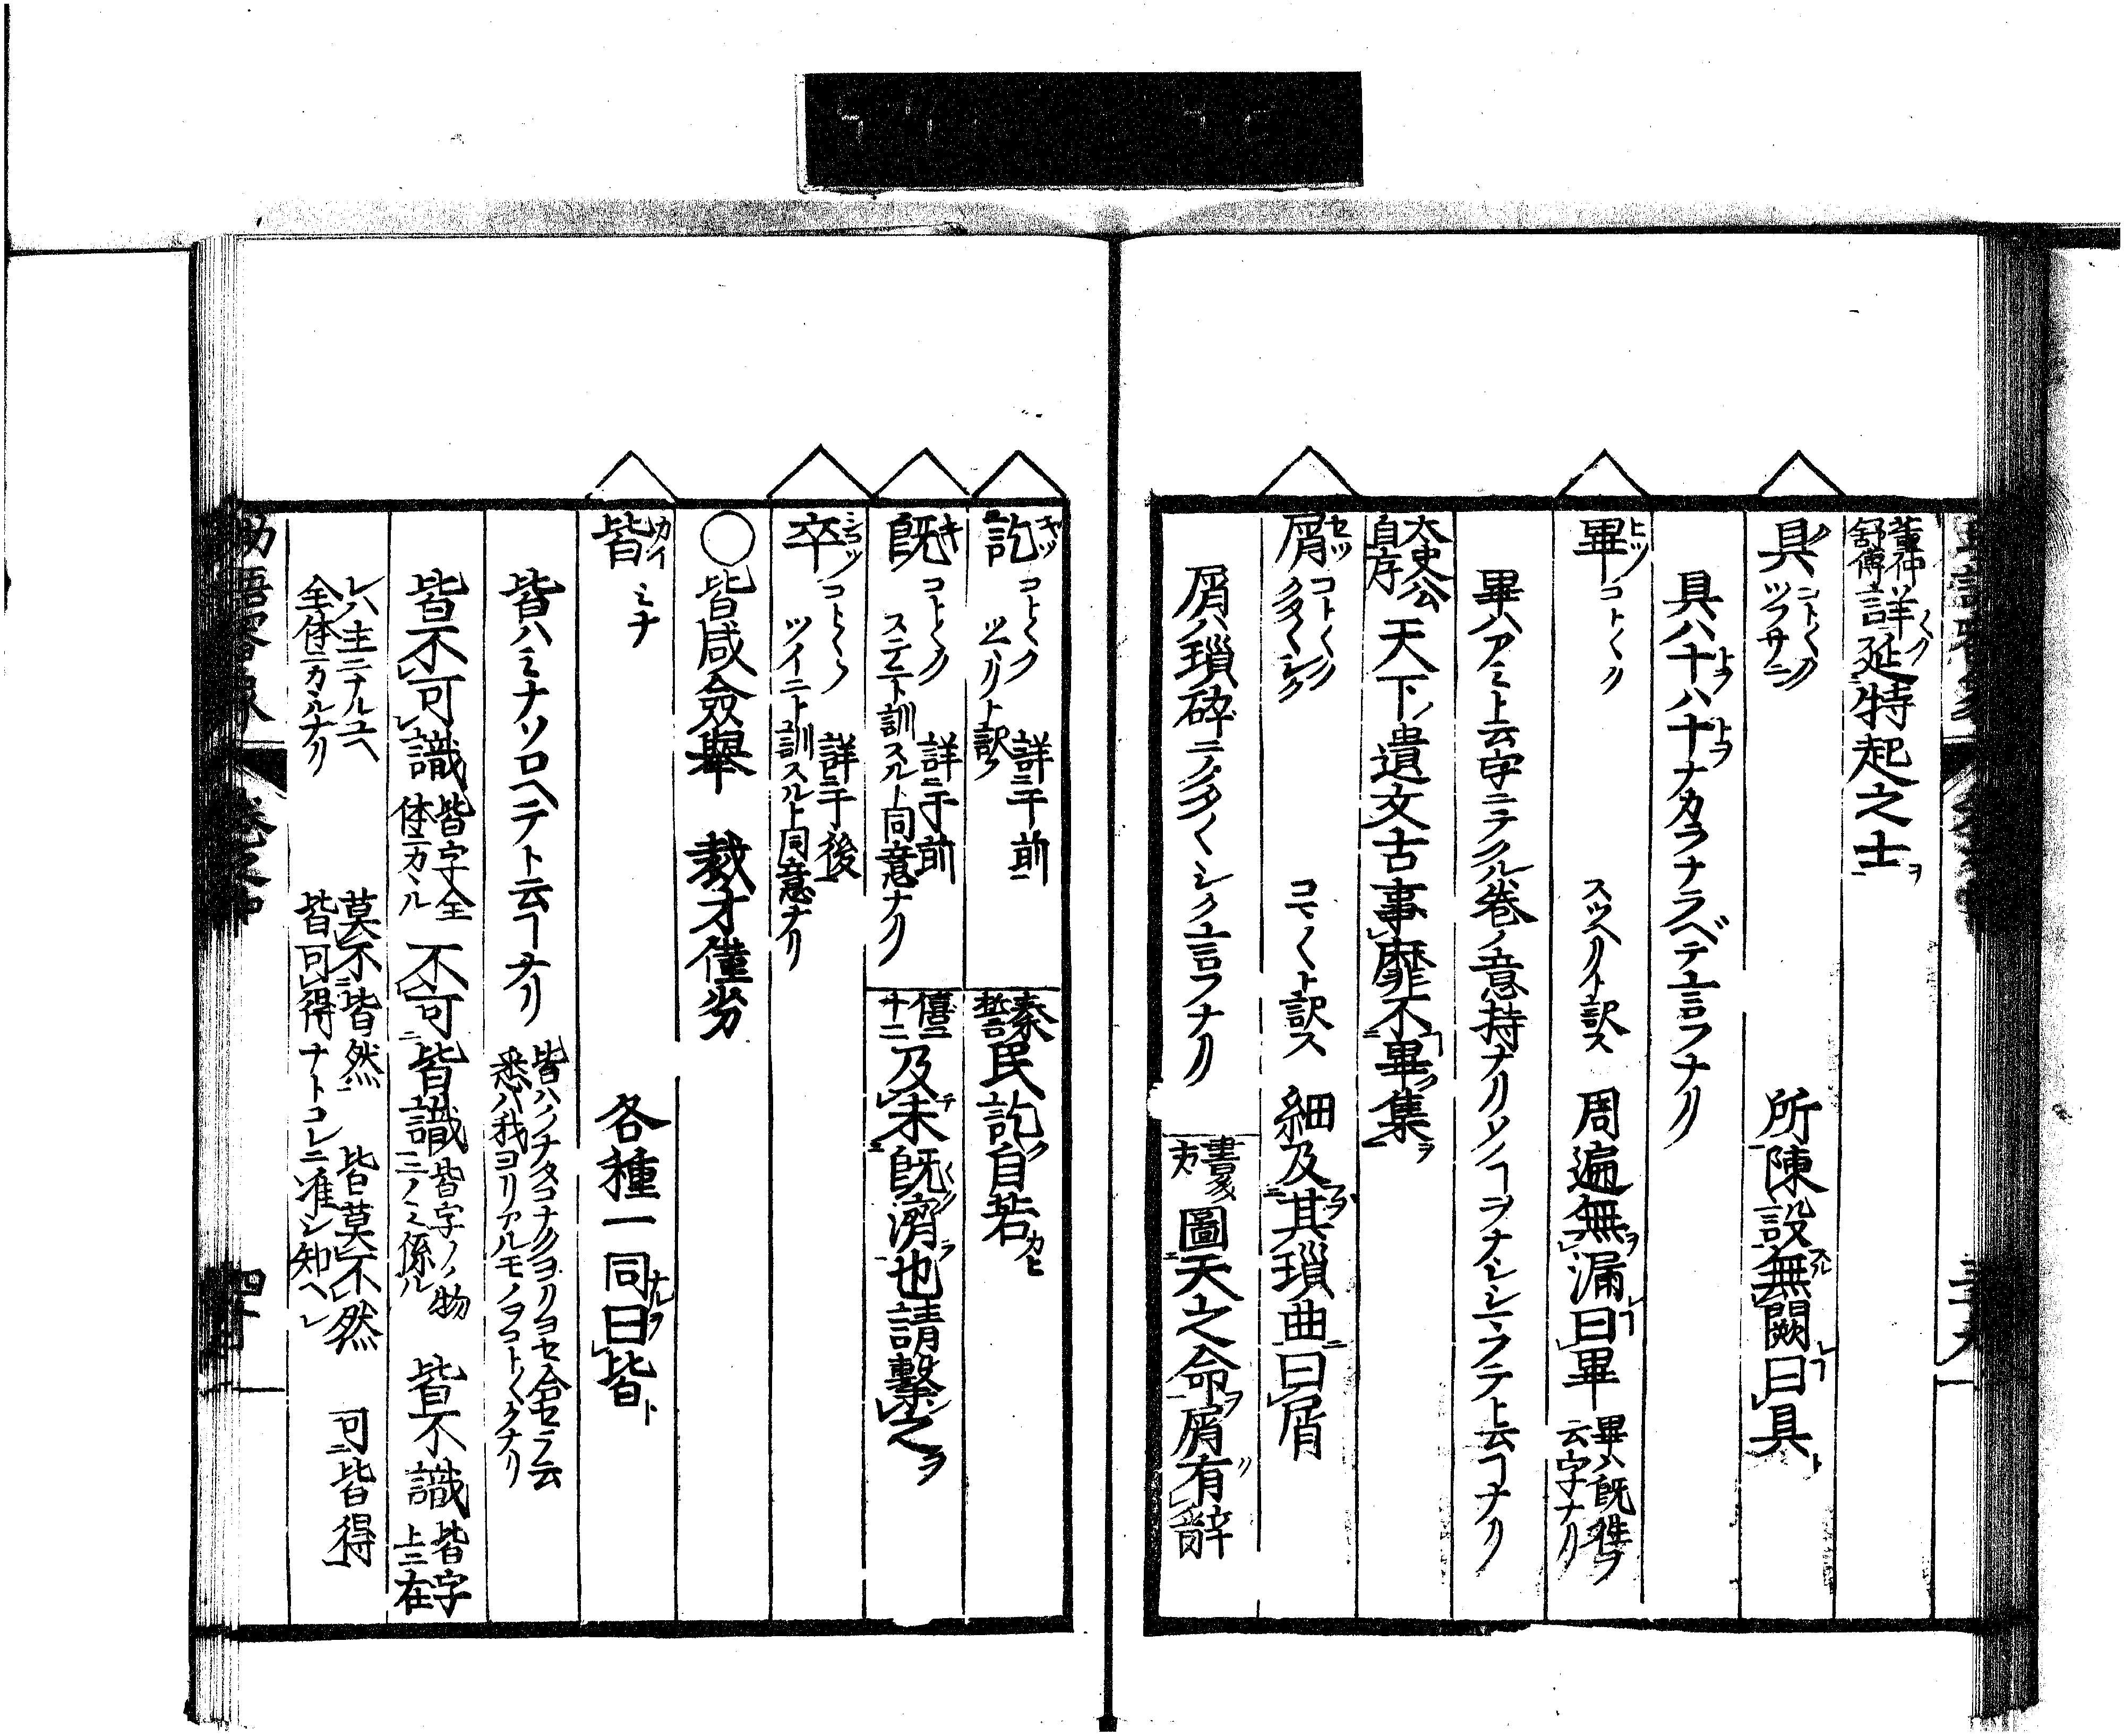 董仲舒傳 詳延特起之士ヲ
具 コト〱ク ツフサニ 所陳設無闕曰具ト
具ハ十ハ十ナカラナラベテ言フナリ
畢 ヒツ コト〱ク スツヘリト訳ス 周遍無漏曰畢 畢ハ既雖ヲ云字ナリ
畢ハアミト云字ニテクル巻ノ意持ナリソノヿヲナシシマフテト云ヿナリ
太史公自序 天下ノ遺文古事靡不畢集
屑 セツ コト〱ク タク〱シク コマ〱ト訳ス 細及其瑣曲曰屑
屑ハ瑣砕ニテクタ〱シク言フナリ
書多方 圖天之命屑有辭
訖 キツ コト〱ク ツマリト訳ス 詳于前 秦誓 民訖自若
既 キ コト〱ク ステニト訓スルト同意ナリ 詳于前 僖二十二 及未既濟也請擊之ヲ
卒 シユツ コト〱ク ツイニト訓スルト同意ナリ 詳于後
○皆咸僉舉 裁才僅劣
皆 カイ ミナ 各種一同曰皆ト
皆ハミナソロヘテト云ヿナリ 皆ハソナタコナタヨリヨセ合セニ云 悉ハ我ヨリアルモノヲコト〱クナリ
皆不可識 皆字全体ニカヽル 不可皆識 皆字ノ物ニノミ係ル 皆不識 皆字上ニ在
レハ主ニナルユヘ全体ニカヽルナリ 莫不皆然 皆莫不然 可皆得 皆可得ナトコレニ准シ知ヘシ
四十